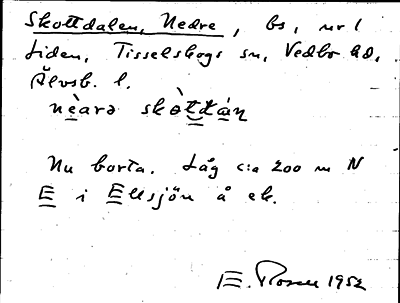 Skottdalen, Nedre, bs, nr 1
Liden, Tisselskogs sn, Vedbo hd,
Älvsb. l.
nèarə skòttdán
Nu borta. Låg c:a 200 m N
E i Ellsjön å ek.
E. Rosén 1952